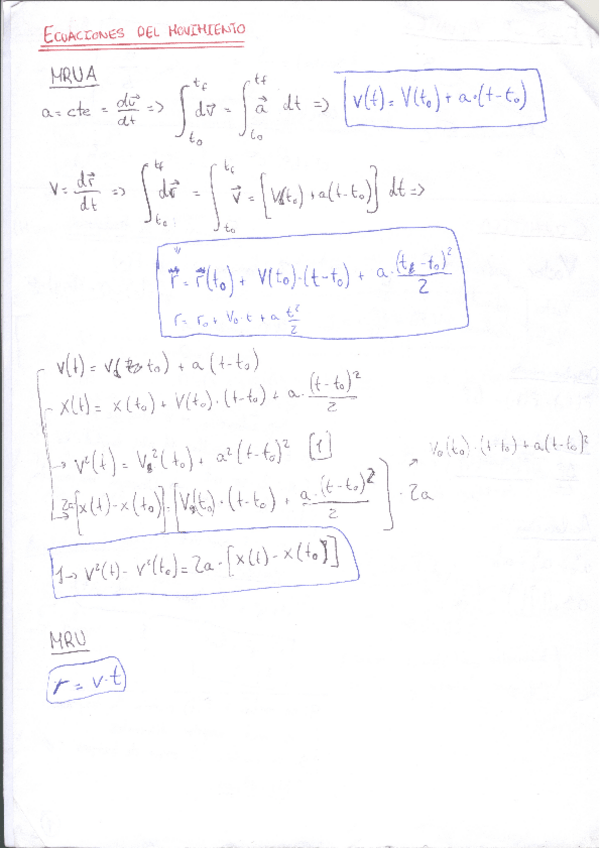 ECUACIONES DEL MOVIMIENTO
MRUA
a = cte = dv⃗/dt => ∫_{t₀}^{t_f} dv⃗ = ∫_{t₀}^{t_f} a⃗ dt => v(t) = V(t₀) + a·(t-t₀)
V = dr⃗/dt => ∫_{t₀}^{t_f} dr⃗ = ∫_{t₀}^{t_f} v⃗ = [V(t₀) + a(t-t₀)] dt =>
r⃗ = r⃗(t₀) + V(t₀)·(t-t₀) + a·(t-t₀)²/2
r = r₀ + V₀·t + a t²/2
v(t) = V(t₀) + a(t-t₀)
x(t) = x(t₀) + V(t₀)·(t-t₀) + a·(t-t₀)²/2
→ V²(t) = V²(t₀) + a²(t-t₀)² [1]
V₀(t₀)·(t-t₀) + a(t-t₀)²
2a[x(t)-x(t₀)] = [V(t₀)·(t-t₀) + a·(t-t₀)²/2]·2a
1→ V²(t) - V²(t₀) = 2a·[x(t) - x(t₀)]
MRU
r = v·t